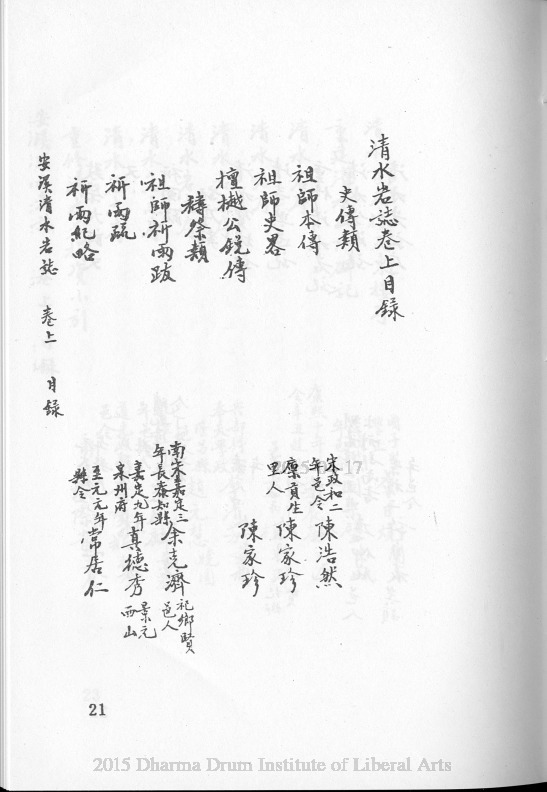 清水岩誌卷上目錄
史傳類
祖師本傳 宋政和二年邑令 陳浩然
祖師史畧 廪貢生 陳家珍
檀樾公銳傳 里人 陳家珍
禱祭類
祖師祈雨跋 南宋嘉定三年長泰知縣 余克濟 祀鄉賢邑人
祈雨疏 嘉定九年泉州府 真德秀 景元西山
祈雨紀略 至元元年縣令 常居仁
安溪清水岩誌 卷上 目錄
21
2015 Dharma Drum Institute of Liberal Arts